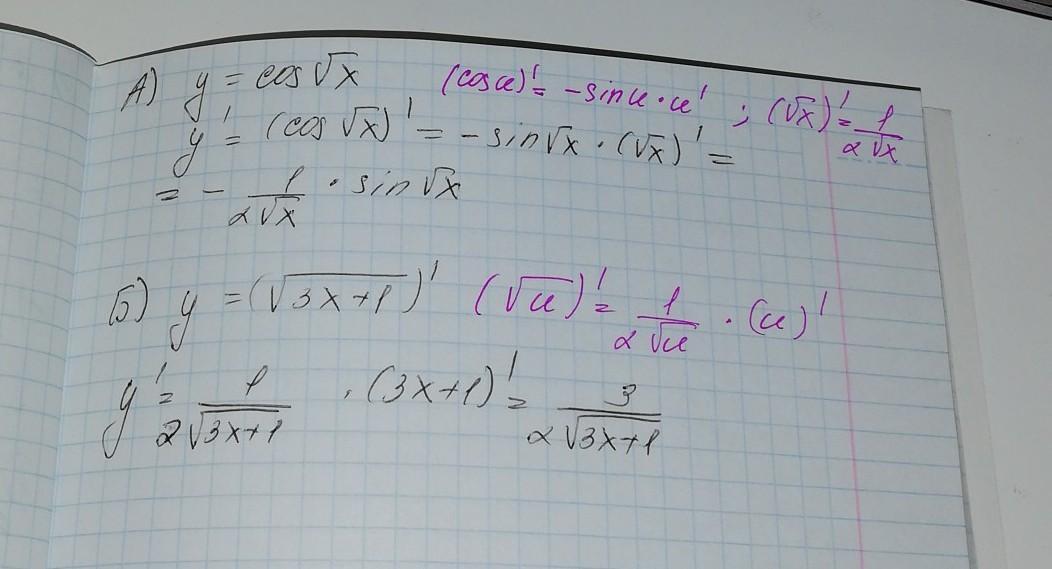 А) y = cos √x   (cos u)' = -sin u · u' ; (√x)' = 1/(2√x)
y' = (cos √x)' = - sin √x · (√x)' =
= - 1/(2√x) · sin √x
Б) y = (√(3x+1))'   (√u)' = 1/(2√u) · (u)'
y' = 1/(2√(3x+1)) · (3x+1)' = 3/(2√(3x+1))